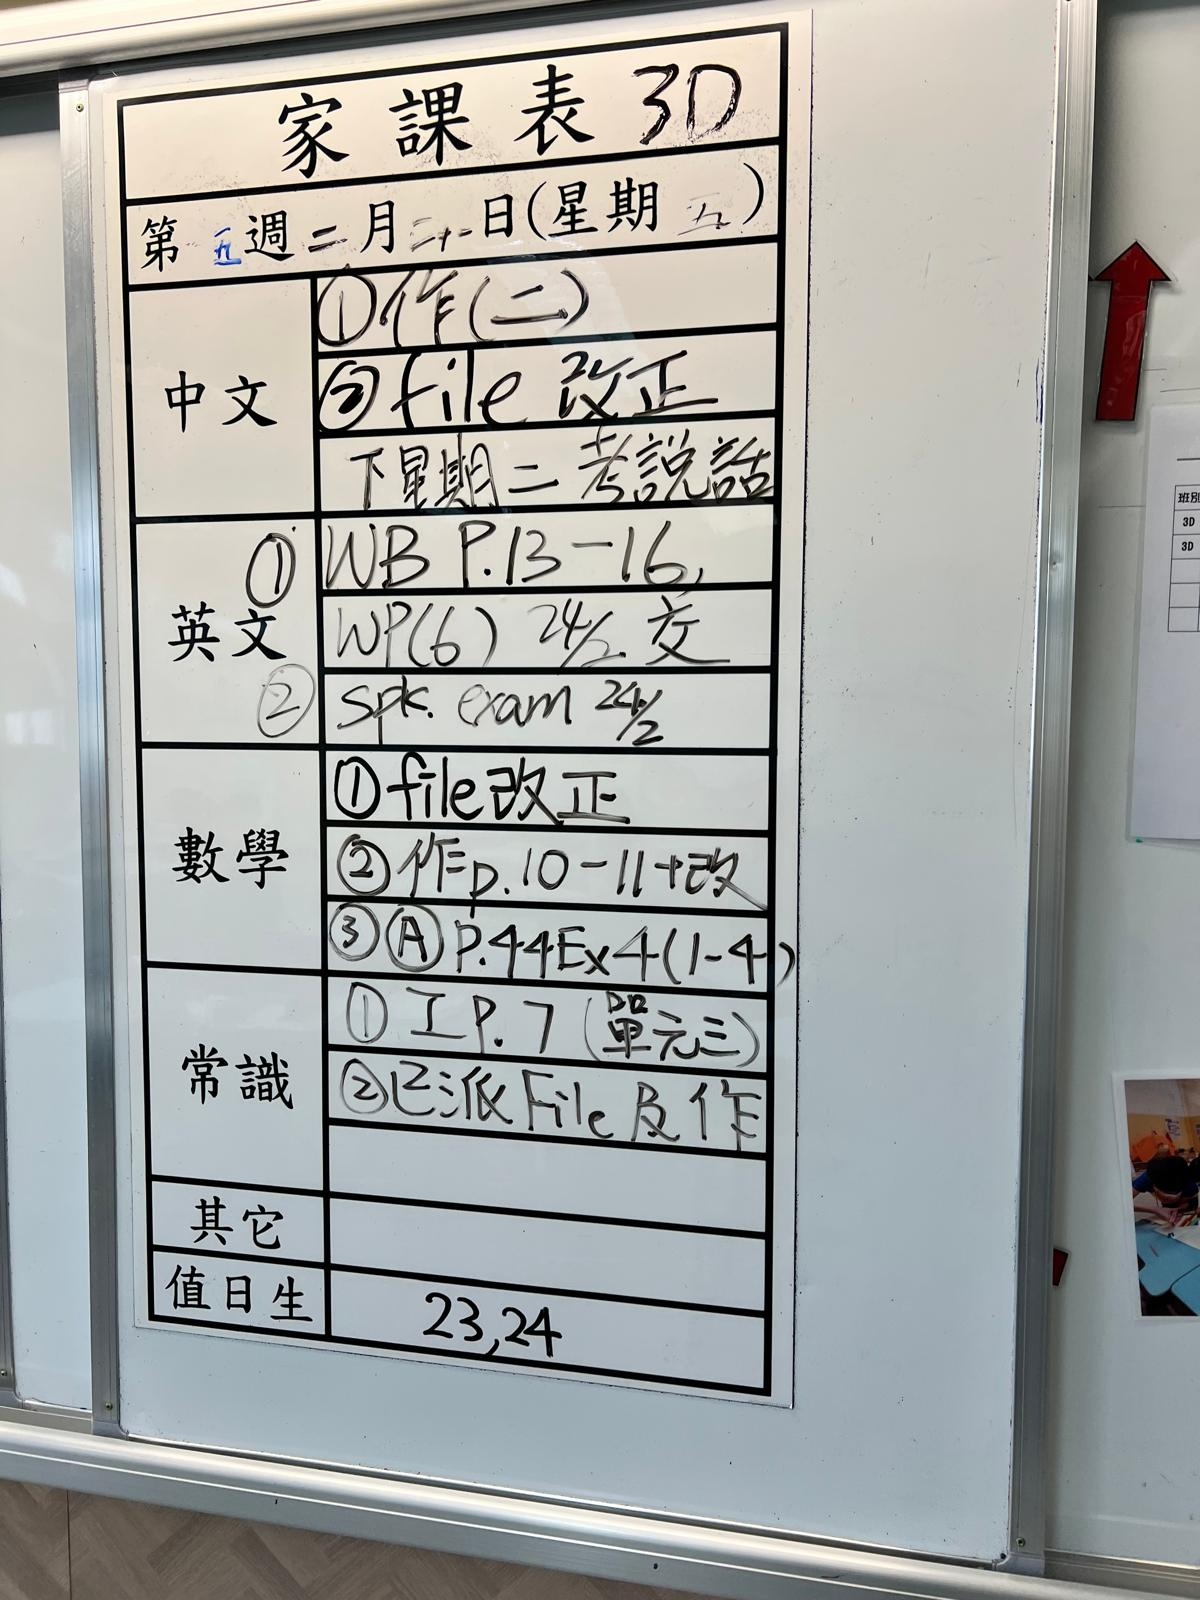 家課表 3D
第五週二月二十一日(星期五)
中文
①作(二)
②file 改正
下星期二考説話
英文
① WB P.13-16,
WP(6) 24/2 交
② spk. exam 24/2
數學
①file改正
②作p.10-11+改
③Ⓐ P.44Ex4(1-4)
常識
①工P.7(單元三)
②已派File及作
其它
值日生
23,24
班別
3D
3D